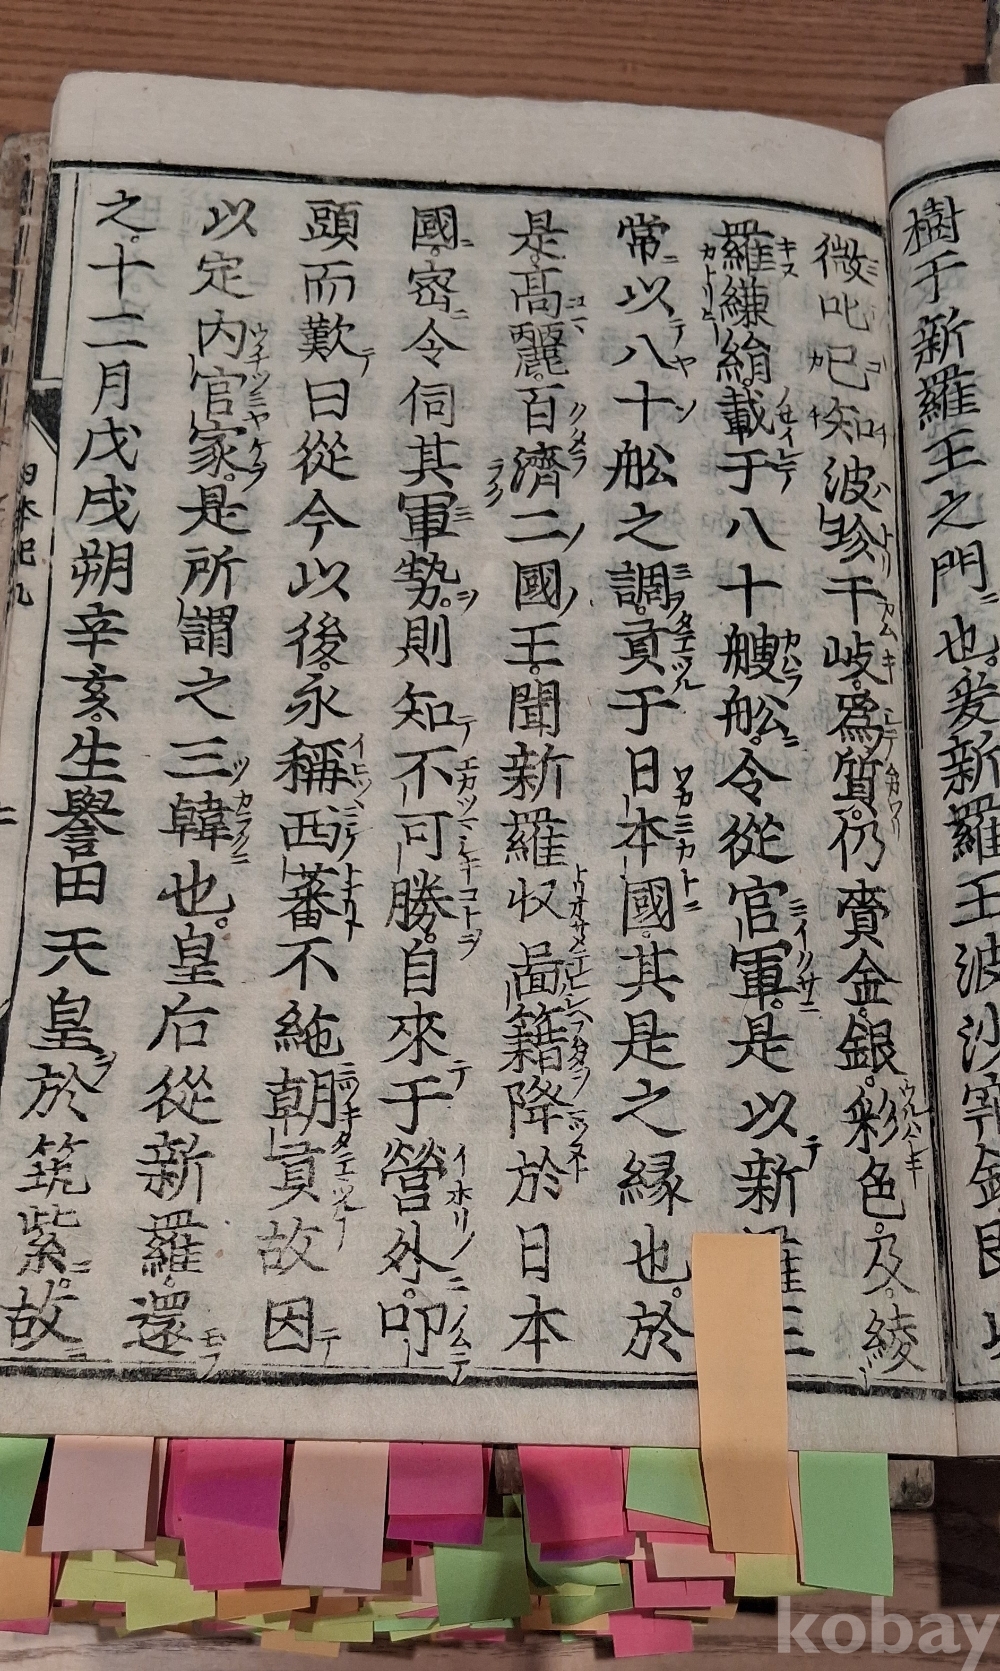 樹于新羅王之門也。爰新羅王波沙寐錦即以
微叱己知波珍干岐。爲質。仍賷金。銀。彩色。及。綾
羅縑絹。載于八十艘舩。令從官軍。是以新羅王
常以八十舩之調。貢于日本國。其是之縁也。於
是。高麗。百濟二國王。聞新羅收啚籍降於日本
國。密令伺其軍勢。則知不可勝。自來于營外。叩
頭而歎曰從今以後。永稱西蕃不絁朝貢故因
以定内官家。是所謂之三韓也。皇后從新羅。還
之。十二月戊戌朔辛亥。生譽田天皇於筑紫。故
日本紀九
kobay